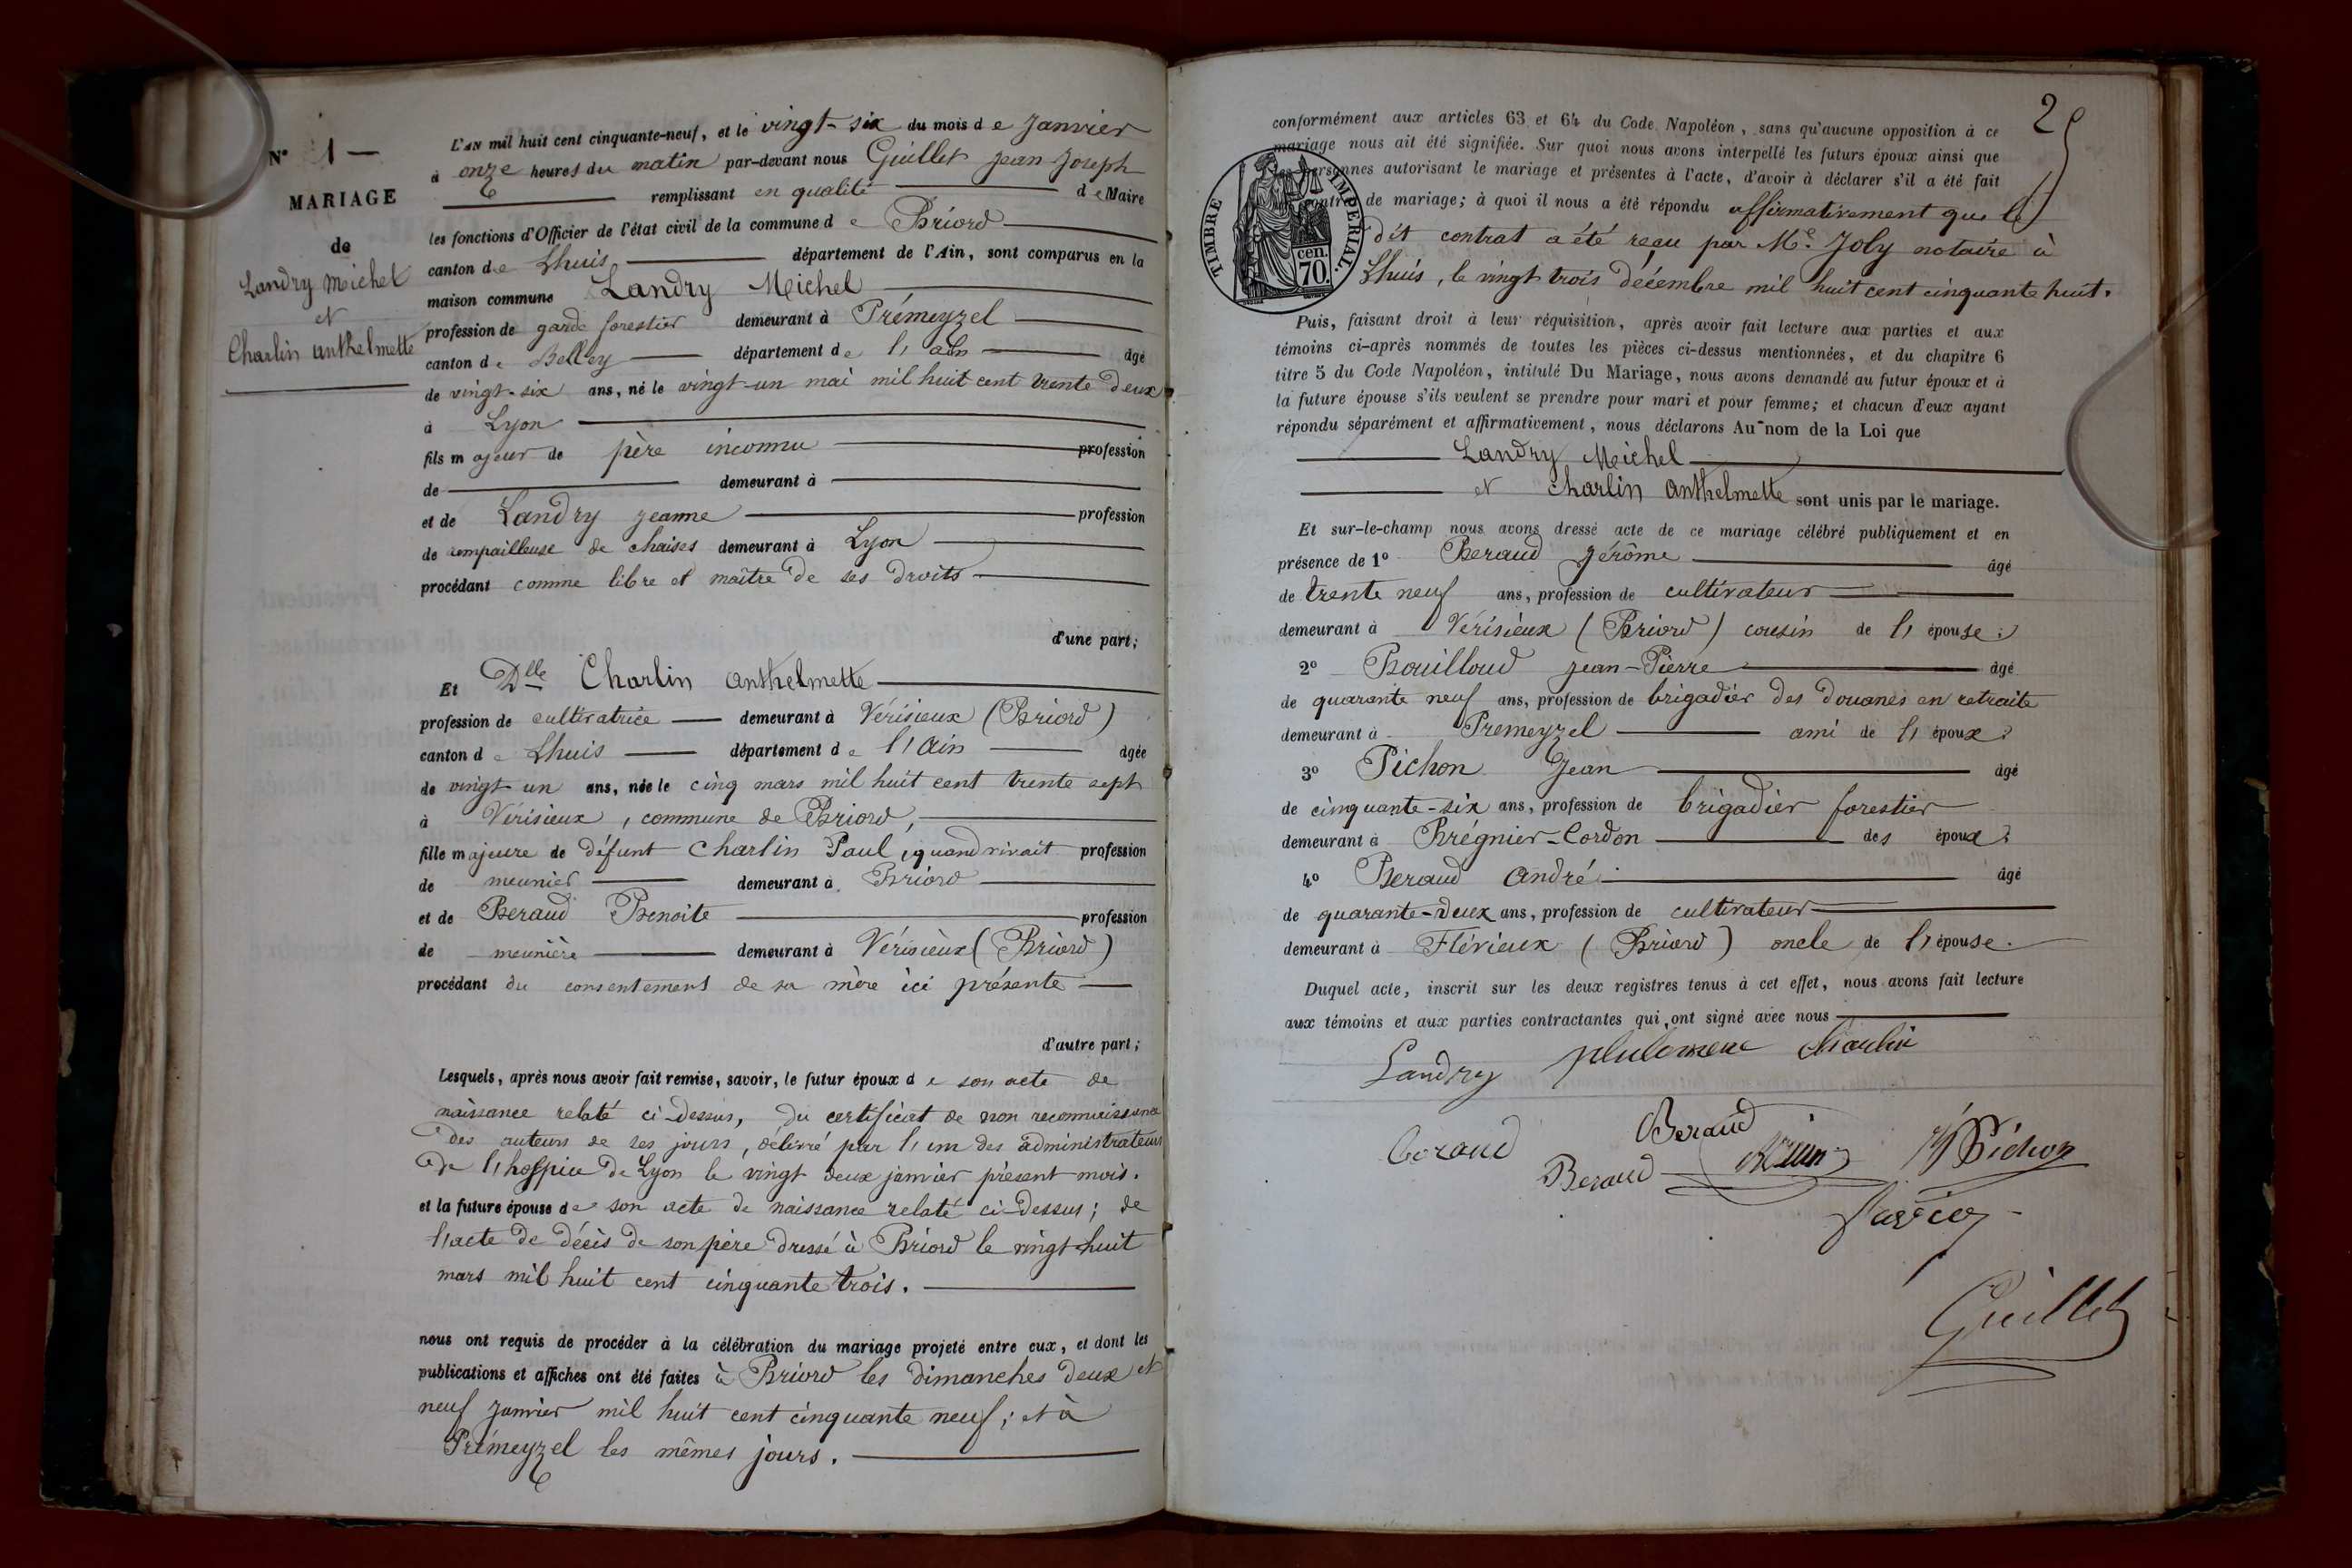 N° 1 —
MARIAGE
de
Landry Michel
et
Charlin anthelmette
L'AN mil huit cent cinquante-neuf, et le vingt-six du mois de Janvier
à onze heures du matin par-devant nous Guillet Jean Joseph
remplissant en qualité de Maire
les fonctions d'Officier de l'état civil de la commune de Briord
canton de Lhuis département de l'Ain, sont comparus en la
maison commune Landry Michel
profession de garde forestier demeurant à Prémeyzel
canton de Belley département de l'ain âgé
de vingt-six ans, né le vingt-un mai mil huit cent trente deux
à Lyon
fils majeur de père inconnu profession
de demeurant à
et de Landry Jeanne profession
de rempailleuse de chaises demeurant à Lyon
procédant comme libre et maître de ses droits
d'une part;
Et Dlle Charlin anthelmette
profession de cultivatrice demeurant à Vérisieux (Briord)
canton de Lhuis département de l'Ain âgée
de vingt un ans, née le cinq mars mil huit cent trente sept
à Vérisieux, commune de Briord,
fille majeure de défunt Charlin Paul, quand vivait profession
de meunier demeurant à Briord
et de Beraud Benoite profession
de meunière demeurant à Vérisieux (Briord)
procédant du consentement de sa mère ici présente
d'autre part;
Lesquels, après nous avoir fait remise, savoir, le futur époux de son acte de
naissance relaté ci-dessus, du certificat de non reconnaissance
des auteurs de ses jours, délivré par l'un des administrateurs
de l'hospice de Lyon le vingt deux janvier présent mois.
et la future épouse de son acte de naissance relaté ci-dessus; de
l'acte de décès de son père dressé à Briord le vingt-huit
mars mil huit cent cinquante trois.
nous ont requis de procéder à la célébration du mariage projeté entre eux, et dont les
publications et affiches ont été faites à Briord les dimanches deux et
neuf janvier mil huit cent cinquante neuf; et à
Prémeyzel les mêmes jours.
2
conformément aux articles 63 et 64 du Code Napoléon, sans qu'aucune opposition à ce
mariage nous ait été signifiée. Sur quoi nous avons interpellé les futurs époux ainsi que
les personnes autorisant le mariage et présentes à l'acte, d'avoir à déclarer s'il a été fait
un contrat de mariage; à quoi il nous a été répondu affirmativement que le
dit contrat a été reçu par Me. Joly notaire à
Lhuis, le vingt trois décembre mil huit cent cinquante huit.
TIMBRE IMPÉRIAL.
cen. 70.
Puis, faisant droit à leur réquisition, après avoir fait lecture aux parties et aux
témoins ci-après nommés de toutes les pièces ci-dessus mentionnées, et du chapitre 6
titre 5 du Code Napoléon, intitulé Du Mariage, nous avons demandé au futur époux et à
la future épouse s'ils veulent se prendre pour mari et pour femme; et chacun d'eux ayant
répondu séparément et affirmativement, nous déclarons Au nom de la Loi que
Landry Michel
et Charlin anthelmette sont unis par le mariage.
Et sur-le-champ nous avons dressé acte de ce mariage célébré publiquement et en
présence de 1° Beraud Jérôme âgé
de trente neuf ans, profession de cultivateur
demeurant à Vérisieux (Briord) cousin de l'épouse;
2° Bouilloud Jean-Pierre âgé
de quarante neuf ans, profession de brigadier des douanes en retraite
demeurant à Premeyzel ami de l'époux;
3° Pichon Jean âgé
de cinquante-six ans, profession de brigadier forestier
demeurant à Brégnier-Cordon des époux;
4° Beraud André âgé
de quarante-deux ans, profession de cultivateur
demeurant à Flévieux (Briord) oncle de l'épouse.
Duquel acte, inscrit sur les deux registres tenus à cet effet, nous avons fait lecture
aux témoins et aux parties contractantes qui ont signé avec nous
Landry philomene charlin
Beraud
Beraud
Beraud Pichon
Guillet